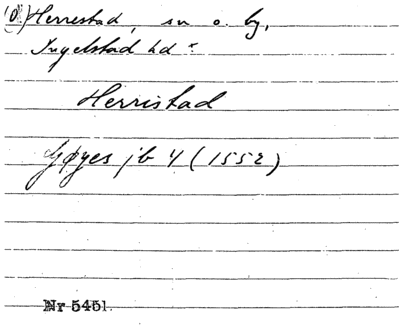 (Ö) Herrestad, sn o. by,
Ingelstad hd
Herristad
Gøyes jb 4 (1552)
Nr 5451.